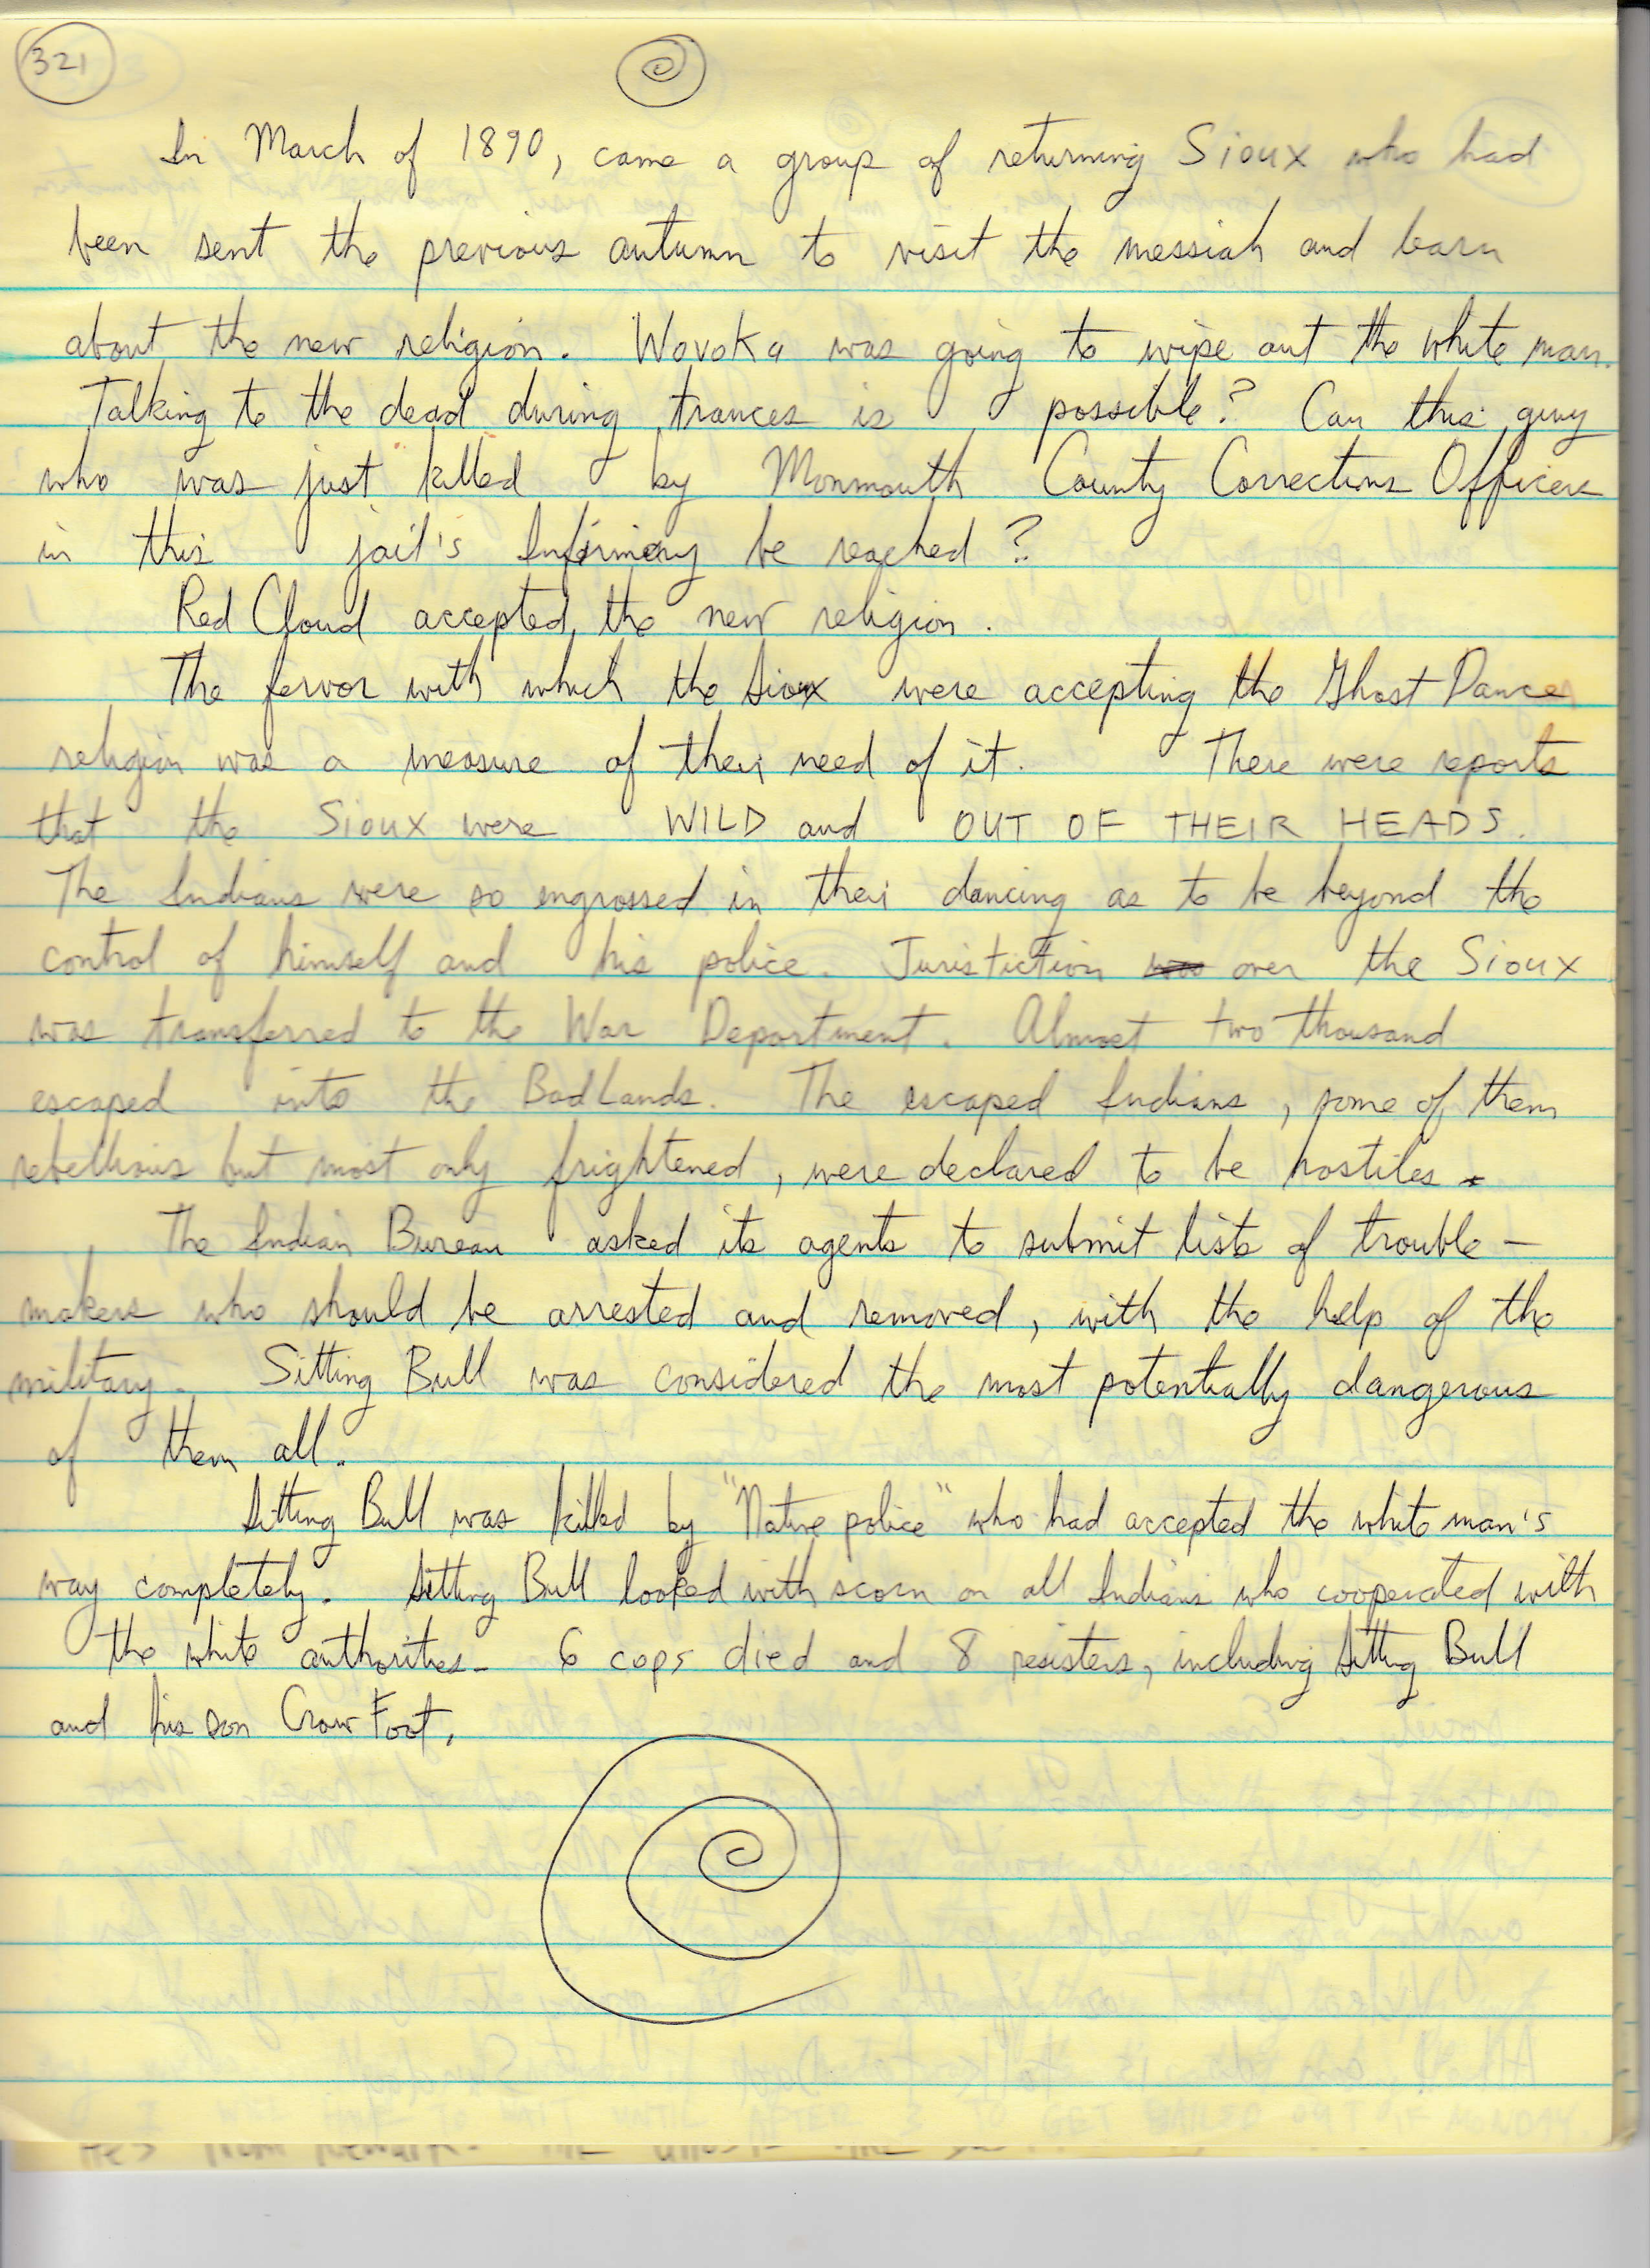 321
In March of 1890, came a group of returning Sioux who had
been sent the previous autumn to visit the messiah and learn
about the new religion. Wovoka was going to wipe out the white man.
Talking to the dead during trances is possible? Can this guy
who was just killed by Monmouth County Corrections Officers
in this jail's Infirmary be reached?
Red Cloud accepted the new religion.
The fervor with which the Sioux were accepting the Ghost Dance
religion was a measure of their need of it. There were reports
that the Sioux were WILD and OUT OF THEIR HEADS.
The Indians were so engrossed in their dancing as to be beyond the
control of himself and his police. Juristiction over the Sioux
was transferred to the War Department. Almost two thousand
escaped into the BadLands. The escaped Indians, some of them
rebellious but most only frightened, were declared to be hostiles.
The Indian Bureau asked its agents to submit lists of trouble-
makers who should be arrested and removed, with the help of the
military. Sitting Bull was considered the most potentially dangerous
of them all.
Sitting Bull was killed by "Native police" who had accepted the white man's
way completely. Sitting Bull looked with scorn on all Indians who cooperated with
the white authorities. 6 cops died and 8 resisters, including Sitting Bull
and his son Crow Foot.